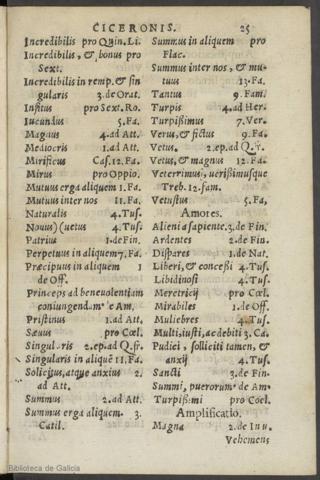 CICERONIS. 25
Incredibilis pro Quin. Li.
Incredibilis, & bonus pro
Sext.
Incredibilis in remp. & sin
gularis 3. de Orat.
Insitus pro Sext. Ro.
Iucundus 5. Fa.
Magnus 4. ad Att.
Mediocris 1. ad Att.
Mirificus Cas. 12. Fa.
Mirus pro Oppio.
Mutuus erga aliquem 1. Fa.
Mutuus inter nos 11. Fa.
Naturalis 4. Tus.
Nouus) (uetus 4. Tus.
Patrius 1. de Fin.
Perpetuus in aliquem 7. Fa.
Præcipuus in aliquem 1
de Off.
Princeps ad beneuolentiam
coniungendam de Am.
Pristinus 1. ad Att.
Sæuus pro Cœl.
Singularis 2. ep. ad Q. fr.
Singularis in aliquē 11. Fa.
Solicitus, atque anxius 2.
ad Att.
Summus 2. ad Att.
Summus erga aliquem. 3.
Catil.
Summus in aliquem pro
Flac.
Summus inter nos, & mu-
tuus 13. Fa.
Tantus 9. Fam.
Turpis 4. ad Her.
Turpißimus 7. Ver.
Verus, & fictus 9. Fa.
Vetus. 2. ep. ad Q. fr.
Vetus, & magnus 12. Fa.
Veterrimus, uerißimusque
Treb. 12. fam.
Vetustus 5. Fa,
Amores.
Alieni a sapiente. 3. de Fin.
Ardentes 2. de Fin.
Dispares 1. de Nat.
Liberi, & conceßi 4. Tus.
Libidinosi 4. Tus.
Meretricij pro Cœl.
Mirabiles 1. de Off.
Muliebres 4. Tus.
Multi, iusti, ac debiti 3. Ca.
Pudici, solliciti tamen, &
anxij 4. Tus.
Sancti 3. de Fin.
Summi, puerorum de Am.
Turpißimi pro Coel.
Amplificatio.
Magna 2. de Inu.
Vehemens
Biblioteca de Galicia